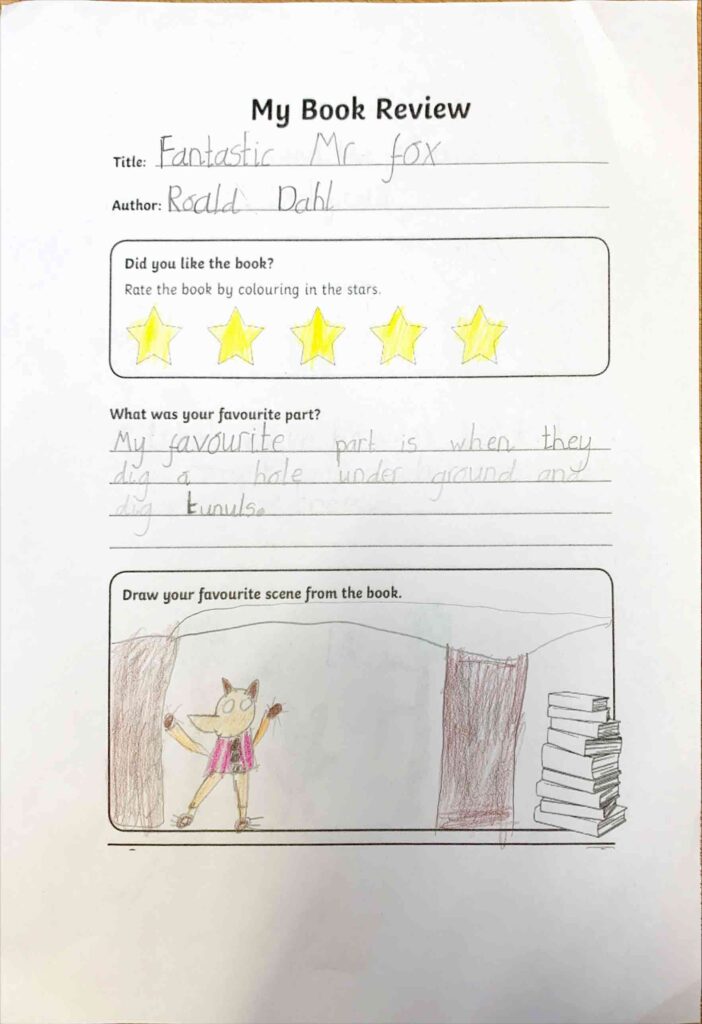 My Book Review
Title: Fantastic Mr fox
Author: Roald Dahl
Did you like the book?
Rate the book by colouring in the stars.
What was your favourite part?
My favourite part is when they
dig a hole under ground and
dig tunuls.
Draw your favourite scene from the book.